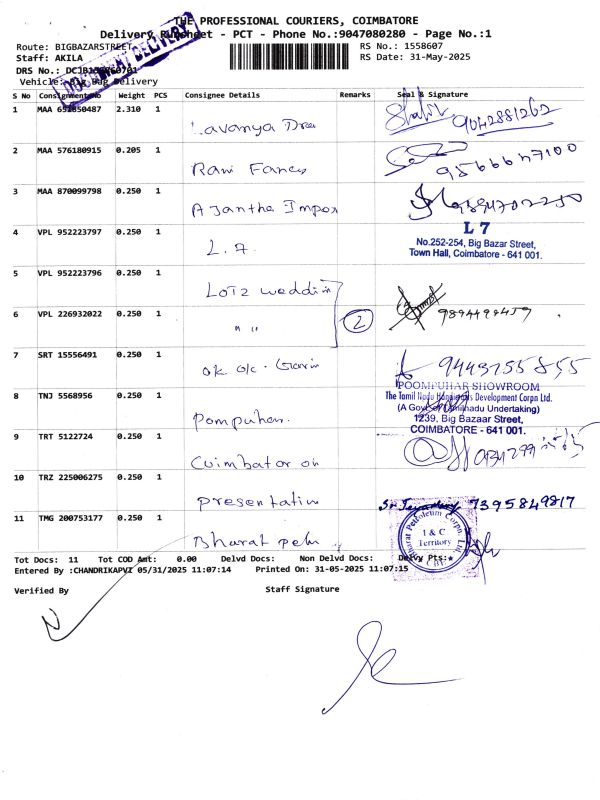 THE PROFESSIONAL COURIERS, COIMBATORE
Delivery Runsheet - PCT - Phone No.:9047080280 - Page No.:1
Route: BIGBAZARSTREET
RS No.: 1558607
Staff: AKILA
RS Date: 31-May-2025
DRS No.:
DOCUMENT DELIVERY
Vehicle: Big Bag Delivery
S No Consignment No Weight PCS Consignee Details Remarks Seal & Signature
1 MAA 2.310 1 Lavanya
9042881262
2 MAA 576180915 0.205 1 Ravi Fancy
9566647100
3 MAA 870099798 0.250 1 Ajantha Impor
4 VPL 952223797 0.250 1 L.7.
L 7
No.252-254, Big Bazar Street,
Town Hall, Coimbatore - 641 001.
5 VPL 952223796 0.250 1 Lotz weddin
6 VPL 226932022 0.250 1 " " 2
7 SRT 15556491 0.250 1 ok ok.
POOMPUHAR SHOWROOM
8 TNJ 5568956 0.250 1 Pompuhar.
The Tamil Nadu Handicrafts Development Corpn Ltd.
(A Govt. of Tamilnadu Undertaking)
1239, Big Bazaar Street,
COIMBATORE - 641 001.
9 TRT 5122724 0.250 1 Coimbator on
10 TRZ 225006275 0.250 1 Presentation
7395849817
11 TMG 200753177 0.250 1 Bharat petn
Bharat Petroleum Corpn. Ltd.
I & C
Territory
CBE
Tot Docs: 11 Tot COD Amt: 0.00 Delvd Docs: Non Delvd Docs: Delvy Pts:
Entered By :CHANDRIKAPVI 05/31/2025 11:07:14 Printed On: 31-05-2025 11:07:15
Verified By Staff Signature